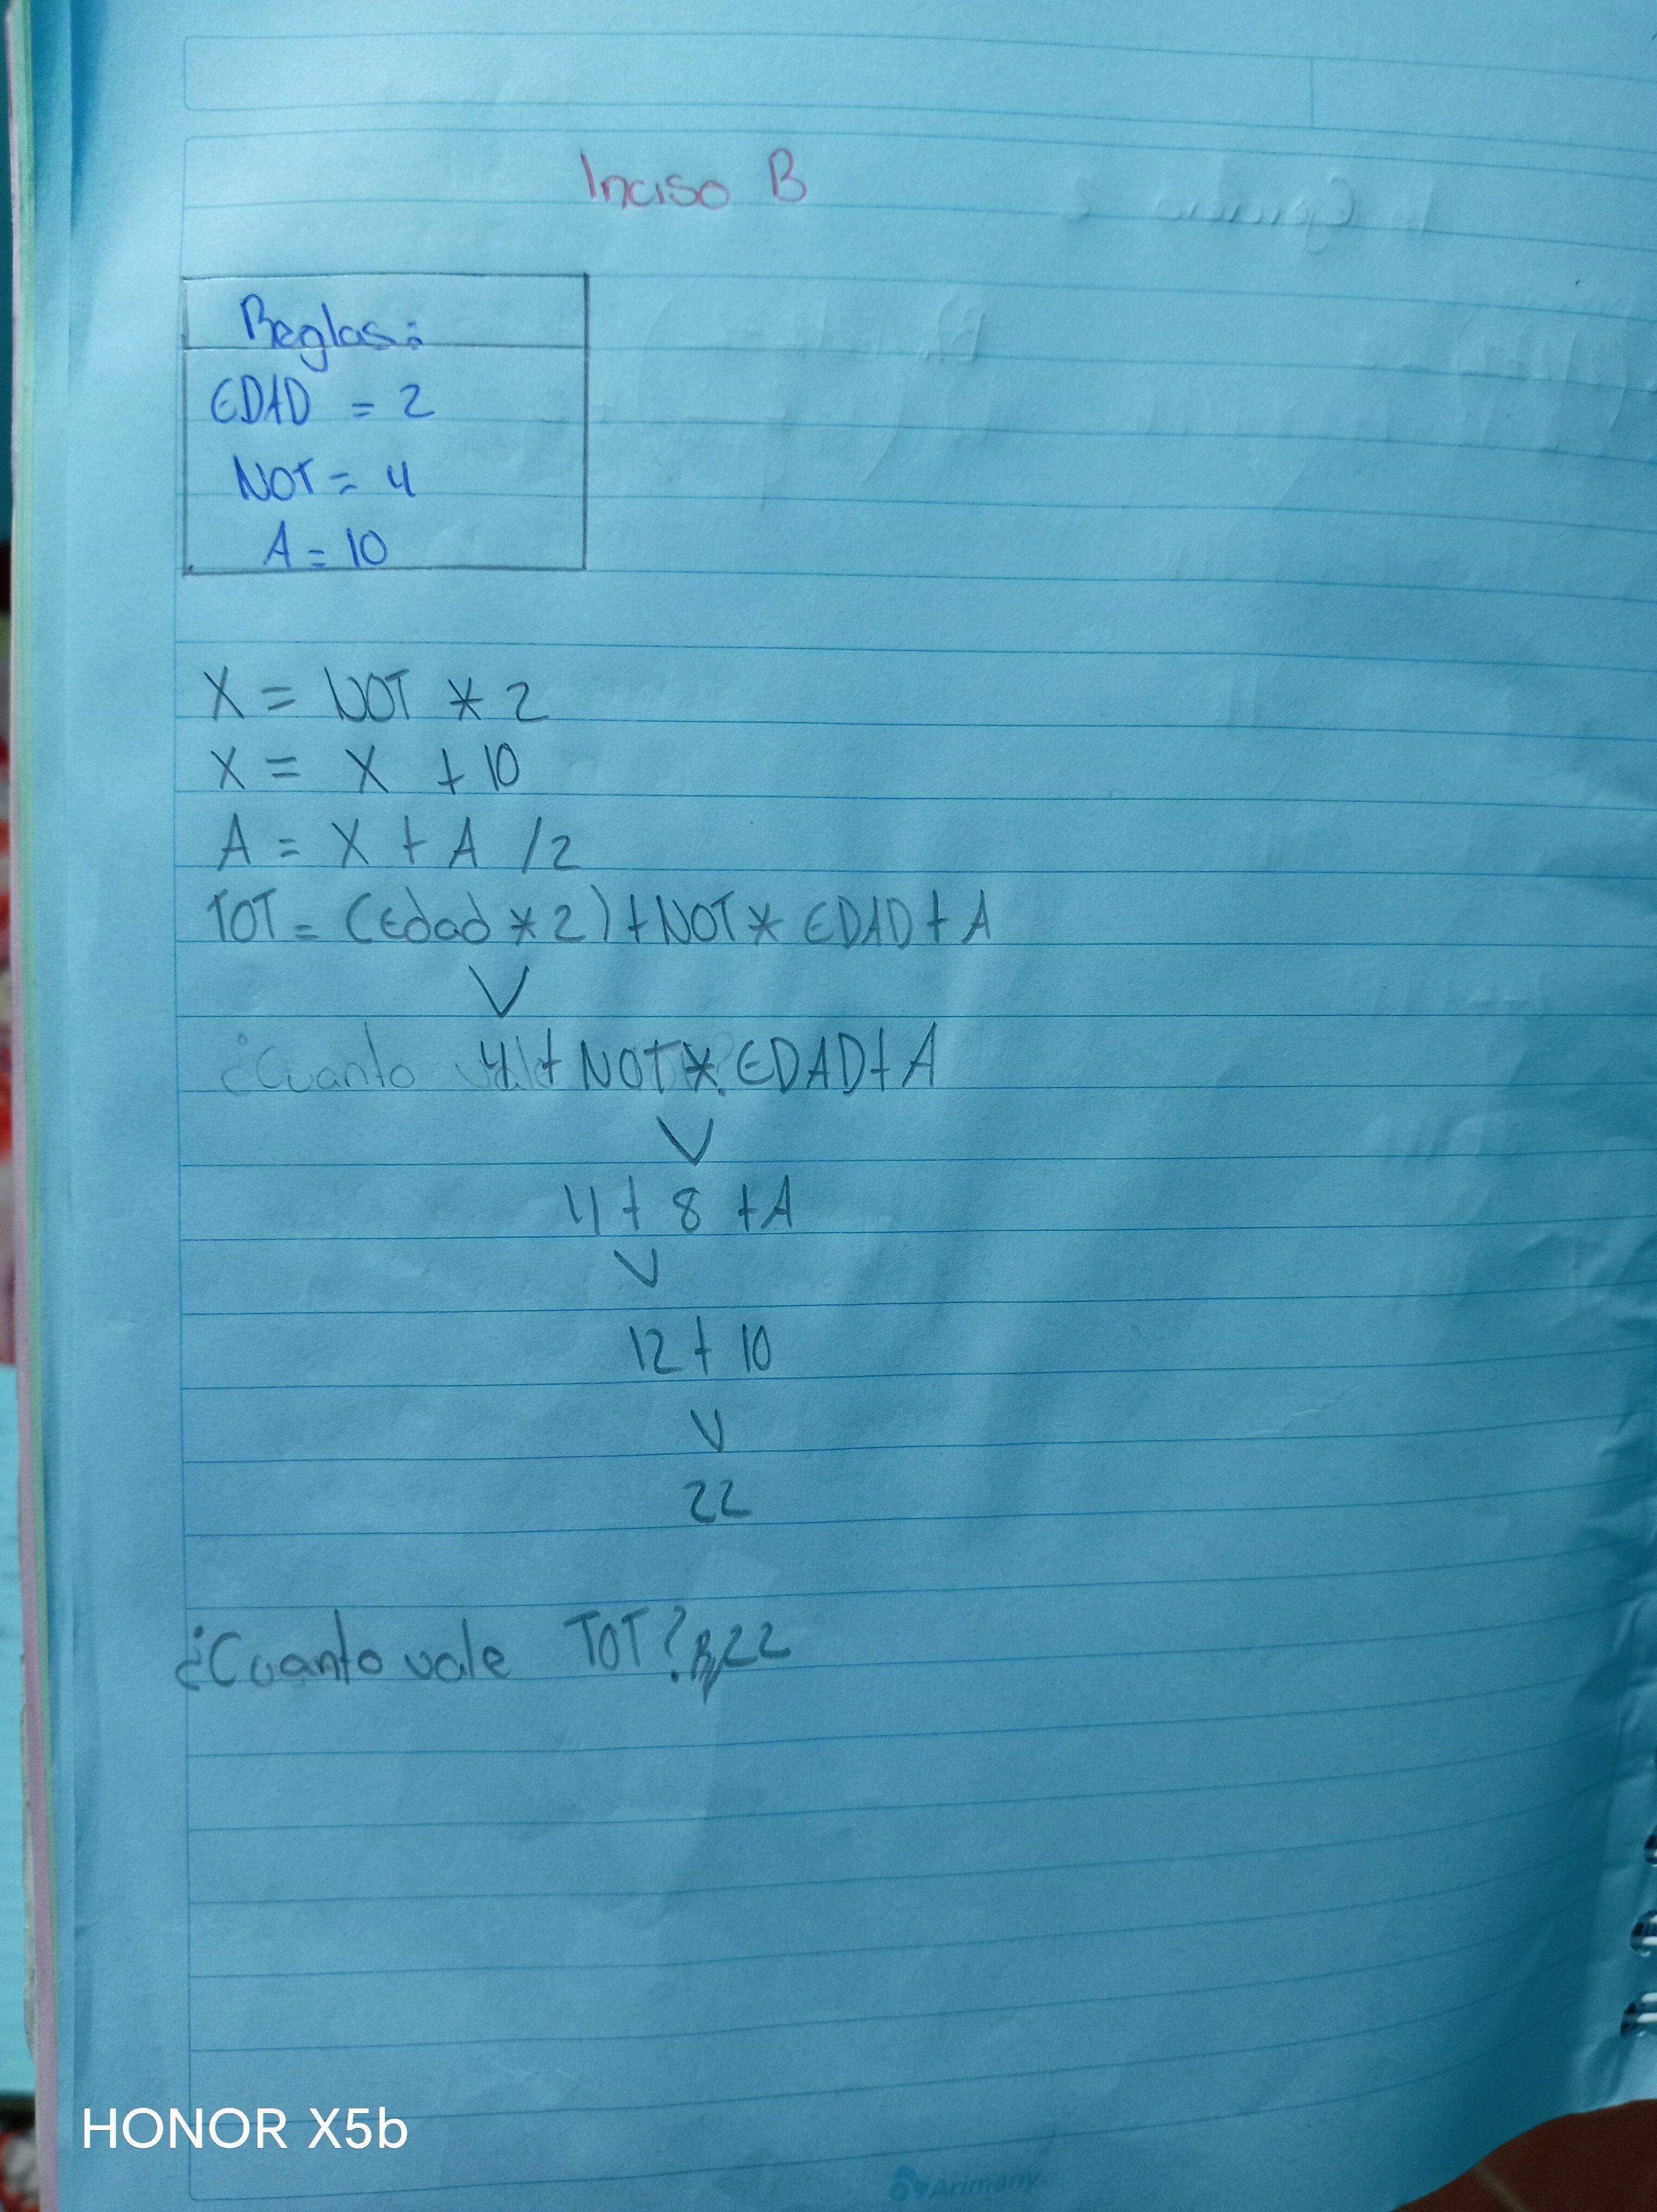 Inciso B
Reglas:
EDAD = 2
NOT = 4
A = 10
X = NOT * 2
X = X + 10
A = X + A /2
TOT = (Edad * 2) + NOT * EDAD + A
V
¿Cuanto 4 + NOT * EDAD + A
V
4 + 8 + A
V
12 + 10
V
22
¿Cuanto vale TOT? R/22
HONOR X5b
Arimany